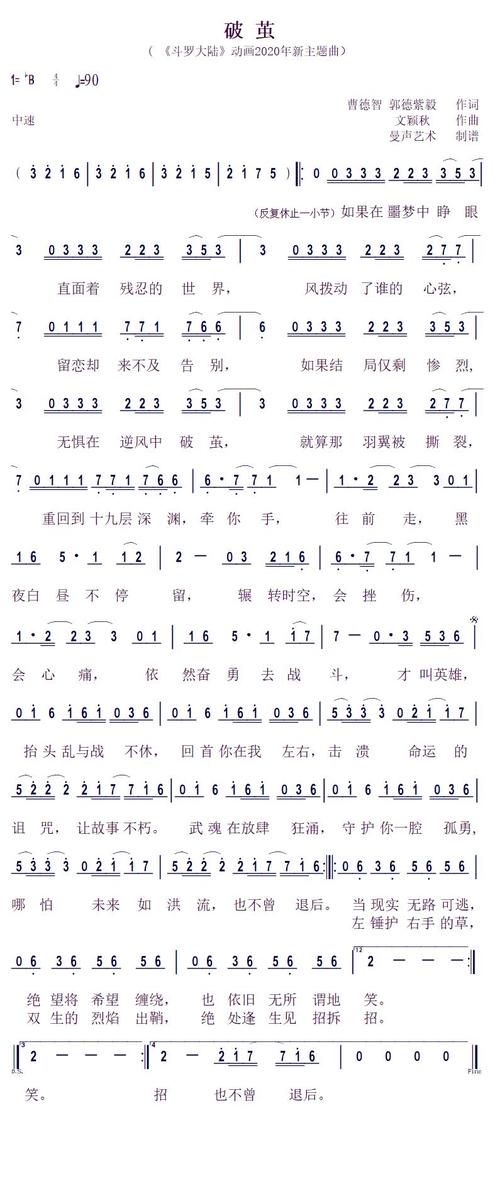 破 茧
( 《斗罗大陆》动画2020年新主题曲)
1= ♭B 4/4 ♩=90
曹德智 郭德紫毅 作词
中速 文颖秋 作曲
曼声艺术 制谱
( 3 2 1 6 | 3 2 1 6 | 3 2 1 5 | 2 1 7 5 ) ‖: 0 0 3 3 3 2 2 3 3 5 3 |
(反复休止一小节) 如果在 噩梦中 睁 眼
3 0 3 3 3 2 2 3 3 5 3 | 3 0 3 3 3 2 2 3 2 7 7 |
直面着 残忍的 世 界, 风拨动 了谁的 心弦,
7 0 1 1 1 7 7 1 7 6 6 | 6 0 3 3 3 2 2 3 3 5 3 |
留恋却 来不及 告 别, 如果结 局仅剩 惨 烈,
3 0 3 3 3 2 2 3 3 5 3 | 3 0 3 3 3 2 2 3 3 5 3 |
无惧在 逆风中 破 茧, 就算那 羽翼被 撕 裂,
7 0 1 1 1 7 7 1 7 6 6 | 6 · 7 7 1 1 — | 1 · 2 2 3 3 0 1 |
重回到 十九层 深 渊, 牵 你 手, 往 前 走, 黑
1 6 5 · 1 1 2 | 2 — 0 3 2 1 6 | 6 · 7 7 1 1 — |
夜白 昼 不 停 留, 辗 转时空, 会 挫 伤,
1 · 2 2 3 3 0 1 | 1 6 5 · 1 1 7 | 7 — 0 · 3 5 3 6 |
会 心 痛, 依 然奋 勇 去 战 斗, 才 叫英雄,
0 1 6 1 6 1 0 3 6 | 0 1 6 1 6 1 0 3 6 | 5 3 3 3 0 2 1 2 1 |
抬 头 乱与战 不休, 回 首 你在我 左右, 击 溃 命运 的
5 2 2 2 2 1 7 7 1 6 | 0 1 6 1 6 1 0 3 6 | 0 1 6 1 6 1 0 3 6 |
诅 咒, 让故事 不朽。 武 魂 在放肆 狂涌, 守 护 你一腔 孤勇,
5 3 3 3 0 2 1 1 7 | 5 2 2 2 2 1 7 7 1 6 :‖: 0 6 3 6 5 6 5 6 |
哪 怕 未来 如 洪 流, 也不 曾 退后。 当 现实 无路 可逃,
左 锤护 右手 的草,
0 6 3 6 5 6 5 6 | 0 6 3 6 5 6 5 6 | 12 2 — — — :‖
绝 望将 希望 缠绕, 也 依旧 无所 谓地 笑。
双 生的 烈焰 出鞘, 绝 处逢 生见 招拆 招。
3 2 — — — :‖ 4 2 — 2 1 7 7 1 6 | 0 0 0 0 ‖
D.S. Fine
笑。 招 也不曾 退后。